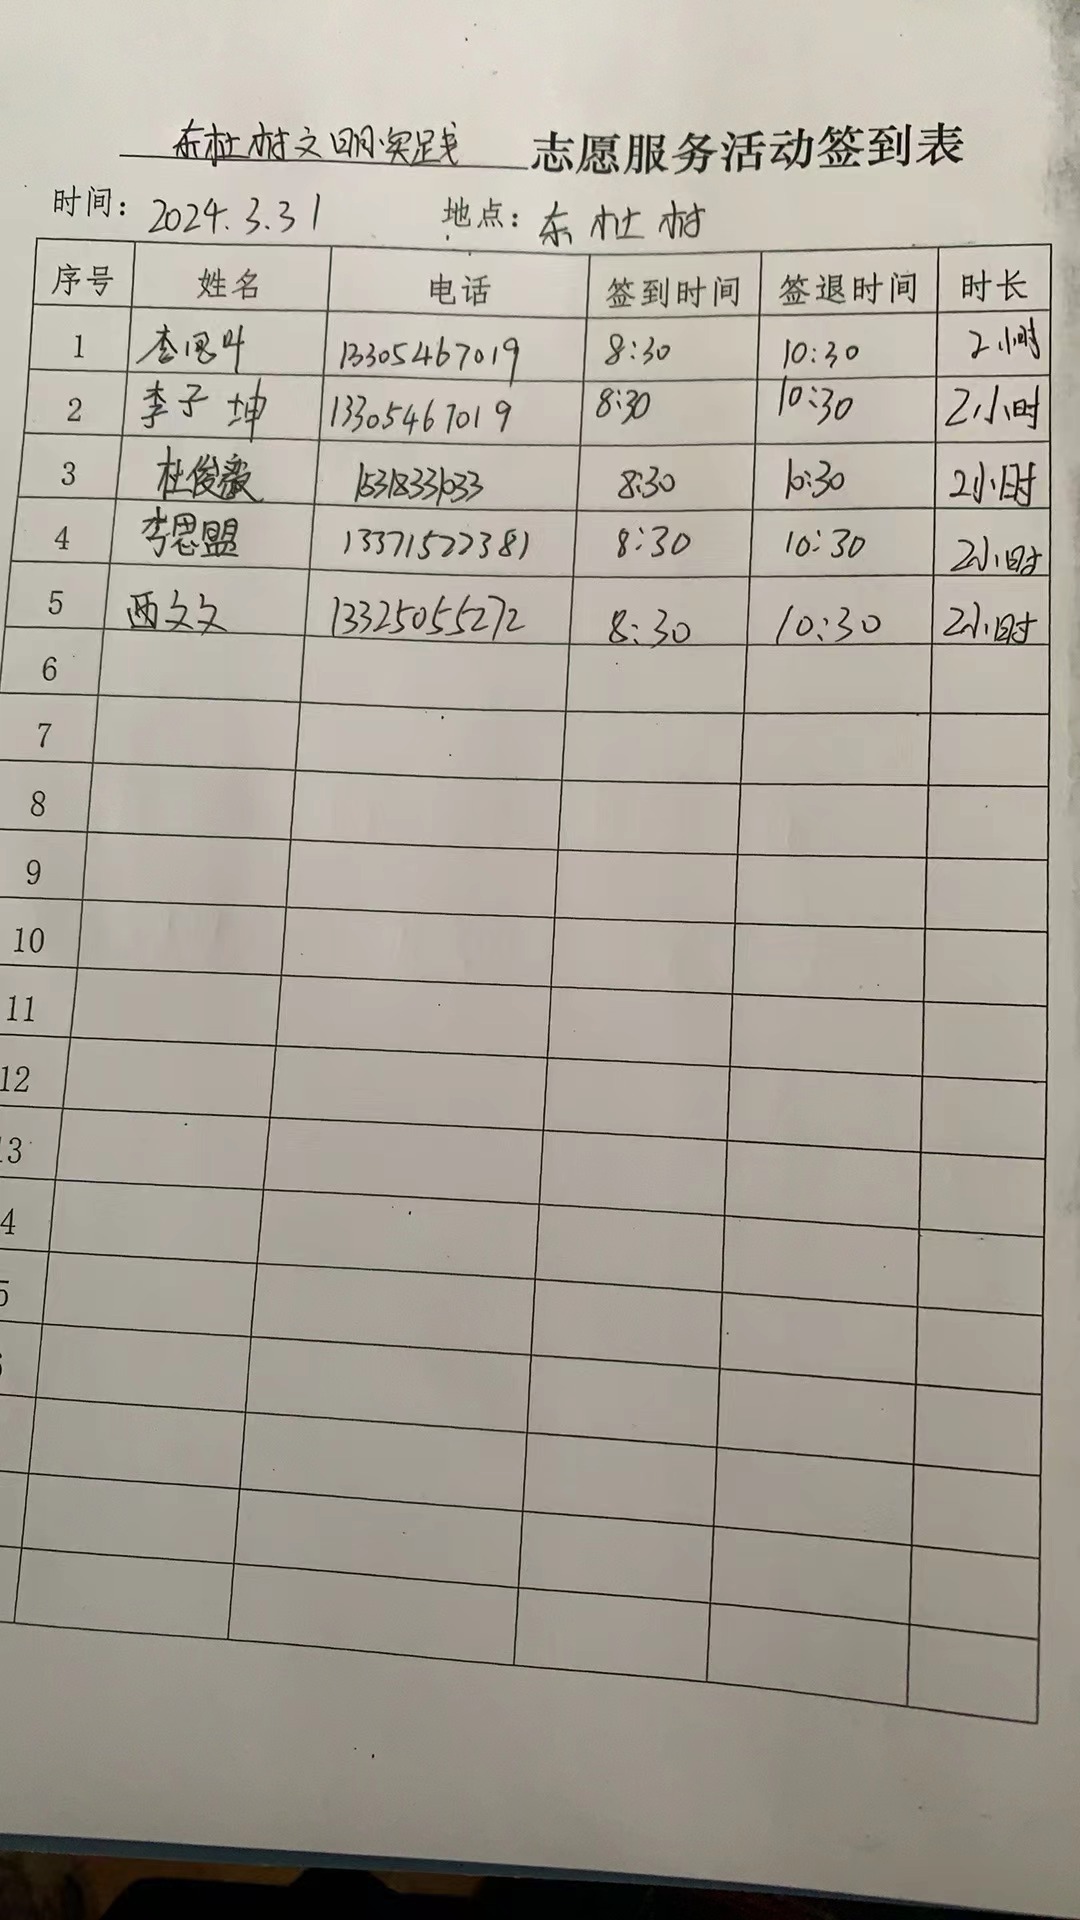 东杜村文明实践 志愿服务活动签到表
时间: 2024.3.31 地点: 东杜村
序号 姓名 电话 签到时间 签退时间 时长
1 李思叶 13305467019 8:30 10:30 2小时
2 李子坤 13305467019 8:30 10:30 2小时
3 杜俊毅 15318331033 8:30 10:30 2小时
4 李思盟 13371522381 8:30 10:30 2小时
5 西文文 13325055272 8:30 10:30 2小时
6
7
8
9
10
11
12
13
4
5